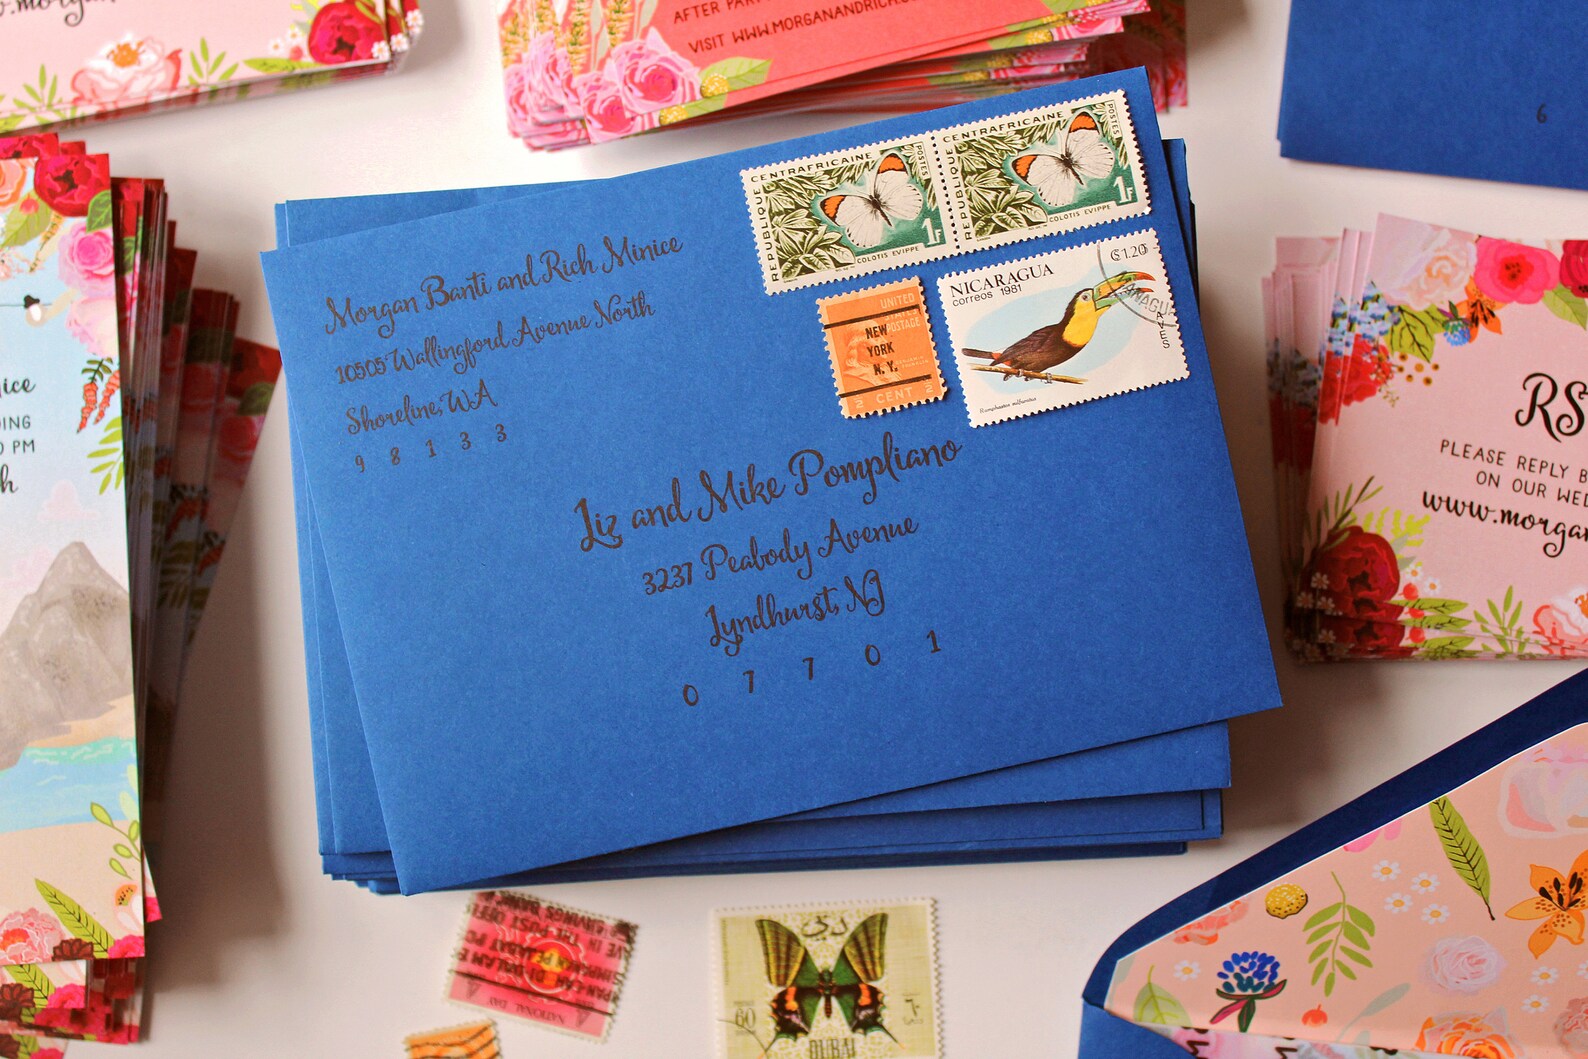 www.morgan
AFTER PAR
VISIT WWW.MORGANANDRICH.
6
Morgan Banti and Rich Minice
10505 Wallingford Avenue North
Shoreline, WA
9 8 1 3 3
REPUBLIQUE CENTRAFRICAINE
POSTES
1F
COLOTIS EVIPPE
REPUBLIQUE CENTRAFRICAINE
POSTES
1F
COLOTIS EVIPPE
UNITED
STATES
POSTAGE
NEW
YORK
N. Y.
2 CENT 2
NICARAGUA
correos 1981
C$1.20
AVES
ANAGUA
Liz and Mike Pompliano
3237 Peabody Avenue
Lyndhurst, NJ
0 7 7 0 1
ice
DING
0 PM
h
RS
PLEASE REPLY B
ON OUR WED
www.morgan
NATIONAL DAY
SAVINGS BANK
THE POST OFFI
دبي
60
DUBAI